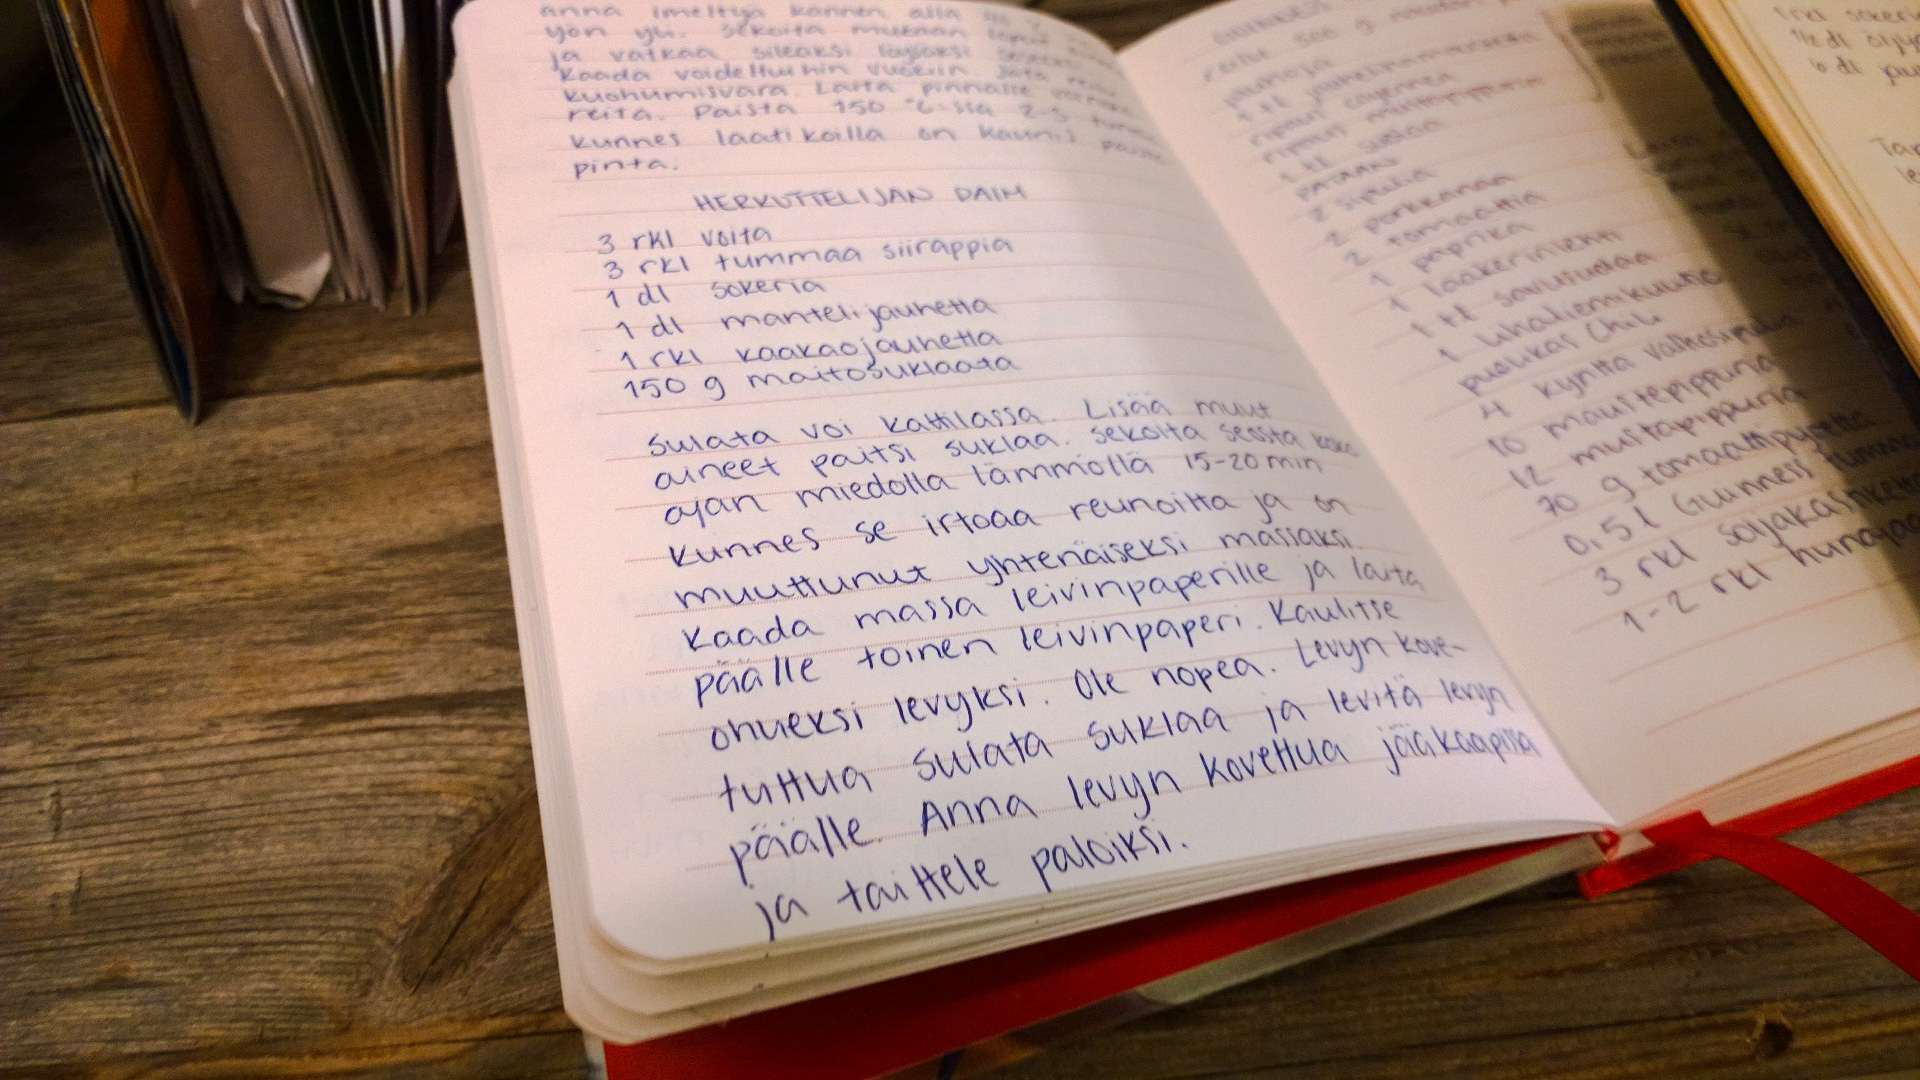 anna imeltyä kannen alla
yön yli. Sekoita mukaan loput
ja vatkaa sileäksi löysäksi
Kaada voideltuihin vuokiin. Jätä
kuohumisvara. Laita pinnalle
reita. Paista 150 °C:ssa 2-3 tuntia
kunnes laatikoilla on kaunis
pinta.
HERKUTTELIJAN DAIM
3 rkl voita
3 rkl tummaa siirappia
1 dl sokeria
1 dl mantelijauhetta
1 rkl kaakaojauhetta
150 g maitosuklaata
Sulata voi kattilassa. Lisää muut
aineet paitsi suklaa. Sekoita seosta koko
ajan miedolla lämmöllä 15-20 min
kunnes se irtoaa reunoilta ja on
muuttunut yhtenäiseksi massaksi.
Kaada massa leivinpaperille ja laita
päälle toinen leivinpaperi. Kaulitse
ohueksi levyksi. Ole nopea. Levyn kove-
tuttua sulata suklaa ja levitä levyn
päälle. Anna levyn kovettua jääkaapissa
ja taittele paloiksi.
500 g naudan
1 tl
ripaus cayennea
ripaus mustapippuria
1 tl suolaa
2 sipulia
2 porkkanaa
2 tomaattia
1 paprika
1 laakerinlehti
1 tl savusuolaa
1 lihaliemikuutio
puolikas Chili
4 kynttä valkosipulia
10 maustepippuria
12 mustapippuria
70 g tomaattipyrettä
0,5 l Guinness
3 rkl soijakastiketta
1-2 rkl hunajaa
1 rkl sokeria
1½ dl öljyä
6 dl